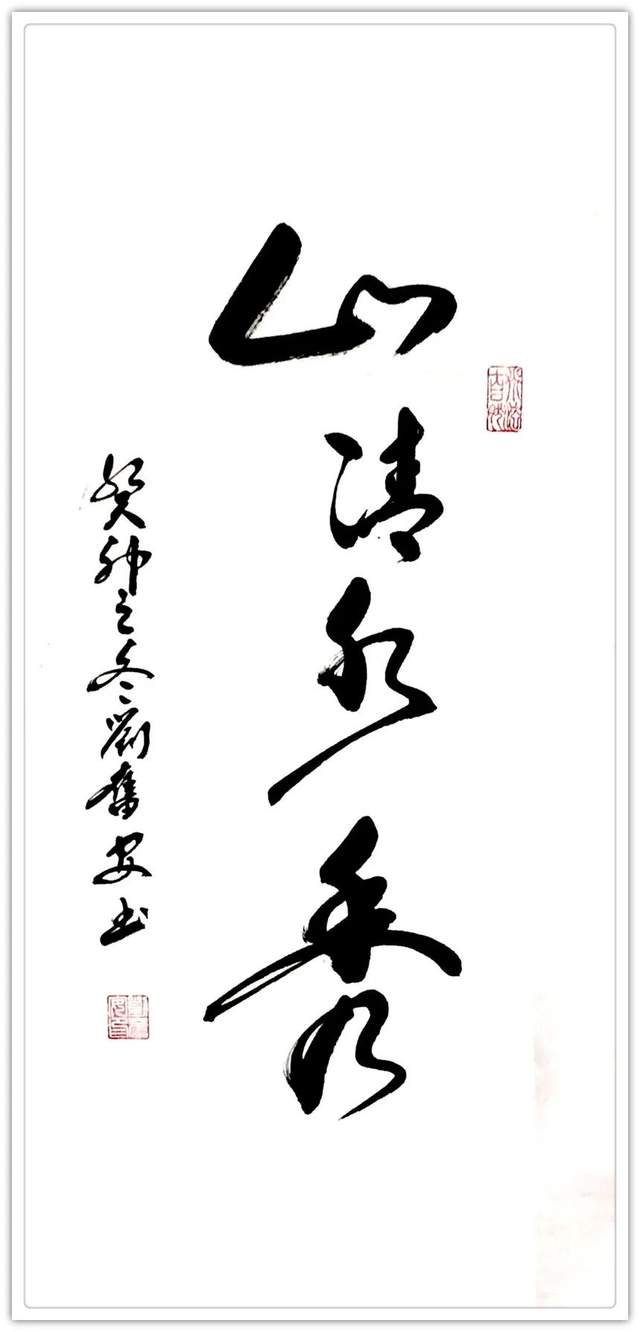 山清水秀
癸卯之冬劉奮安书